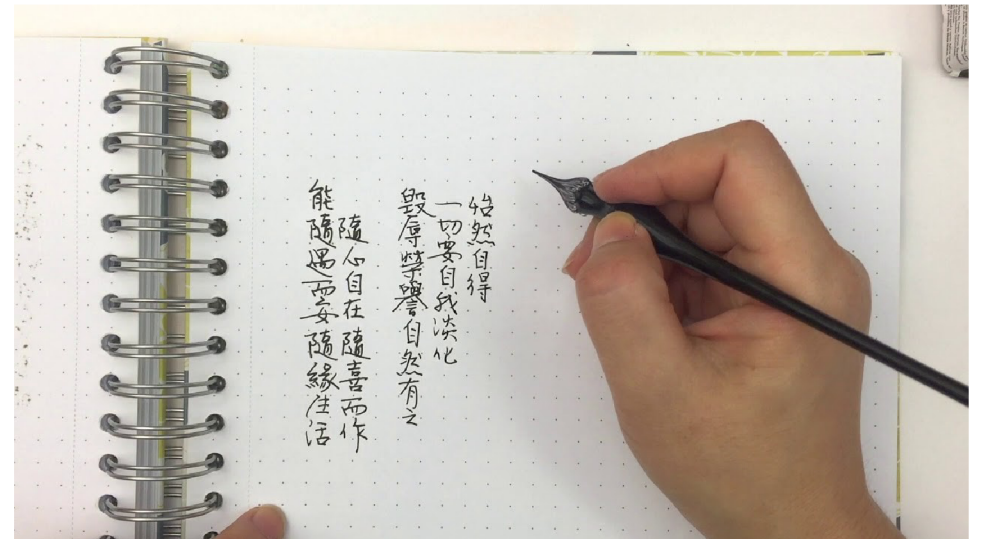 怡然自得
一切要自我淡化
毀辱榮譽自然有之
隨心自在 隨喜而作
能隨遇而安隨緣生活